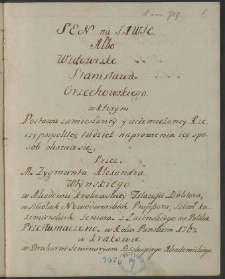 SEN na JAWIE
Albo
Widowisko
Stanisława
Orzechowskiego
w którym
Postawa zamieszoney y uciemiężoney Rze
czypospolitey tudzież naprawienia iey spo
sób okazuie się.
Przez
M. Zygmunta Alexandra
Włyńskiego
w Akademii Krakowskiey Filozofii Doktora,
w Szkołach Nowodworskich Professora, Szkół ka
zimirskich Seniora z Łacińskiego na Polskie
Przetłumaczone, w Roku Pańskim 1767
w Krakowie
w Drukarni Seminaryum Biskupiego Akademickiego